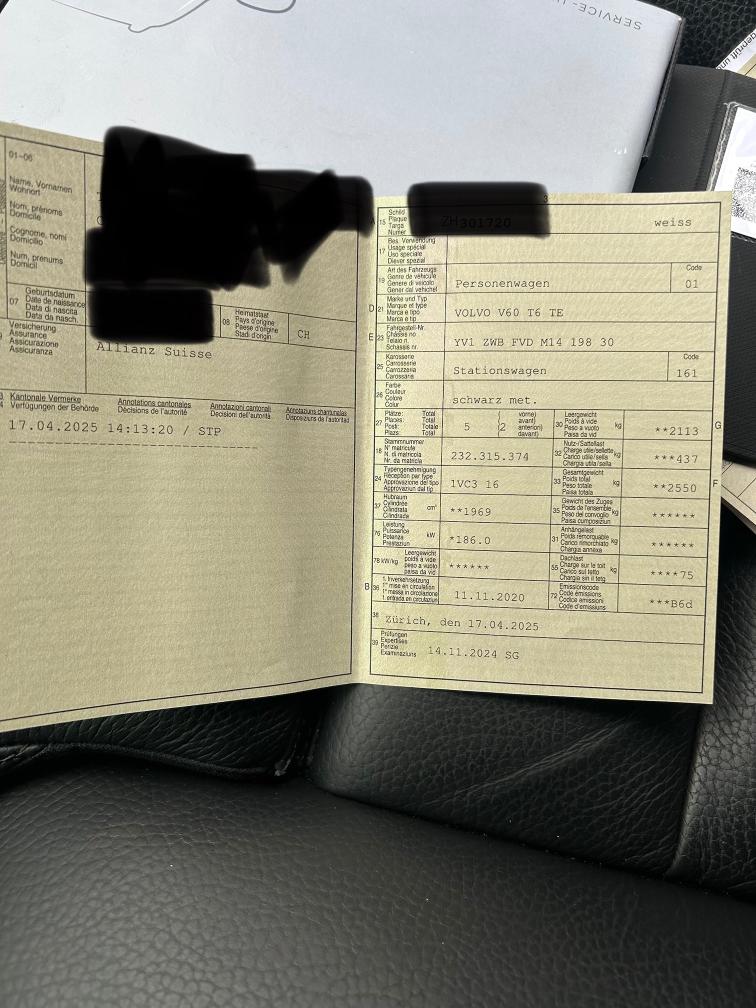 SERVICE-
geprüft un
01-06
Name, Vornamen
Wohnort
Nom, prénoms
Domicile
Cognome, nomi
Domicilio
Num, prenums
Domicil
07
Geburtsdatum
Date de naissance
Data di nascita
Data da nasch.
08
Heimatstaat
Pays d'origine
Paese d'origine
Stadi d'origin
CH
Versicherung
Assurance
Assicurazione
Assicuranza
Allianz Suisse
Kantonale Vermerke
Verfügungen der Behörde
Annotations cantonales
Décisions de l'autorité
Annotazioni cantonali
Decisioni dell'autorità
Annotaziuns chantunalas
Disposiziuns da l'autoritad
17.04.2025 14:13:20 / STP
A 15
Schild
Plaque
Targa
Numer
weiss
17
Bes. Verwendung
Usage spécial
Uso speciale
Diever spezial
19
Art des Fahrzeugs
Genre de véhicule
Genere di veicolo
Gener dal vehichel
Personenwagen
Code
01
D 21
Marke und Typ
Marque et type
Marca e tipo
Marca e tip
VOLVO V60 T6 TE
E 23
Fahrgestell-Nr.
Châssis no
Telaio n.
Schassis nr.
YV1 ZWB FVD M14 198 30
25
Karosserie
Carrosserie
Carrozzeria
Carossaria
Stationswagen
Code
161
26
Farbe
Couleur
Colore
Colur
schwarz met.
27
Plätze: Total
Places: Total
Posti: Totale
Plazs: Total
5
(2
vorne)
avant)
anteriori)
davant)
30
Leergewicht
Poids à vide
Peso a vuoto
Paisa da vid
kg
**2113
G
18
Stammnummer
N° matricule
N. di matricola
Nr. da matricla
232.315.374
32
Nutz-/Sattellast
Charge utile/sellette
Carico utile/sella
Chargia utila/sella
kg
***437
24
Typengenehmigung
Réception par type
Approvazione del tipo
Approvaziun dal tip
1VC3 16
33
Gesamtgewicht
Poids total
Peso totale
Paisa totala
kg
**2550
F
37
Hubraum
Cylindrée
Cilindrata
Cilindrada
cm³
**1969
35
Gewicht des Zuges
Poids de l'ensemble
Peso del convoglio
Paisa cumposiziun
kg
******
76
Leistung
Puissance
Potenza
Prestaziun
kW
*186.0
31
Anhängelast
Poids remorquable
Carico rimorchiato
Chargia annexa
kg
******
78 kW/kg
Leergewicht
poids à vide
peso a vuoto
paisa da vid
******
55
Dachlast
Charge sur le toit
Carico sul tetto
Chargia sin il tetg
kg
****75
B 36
1. Inverkehrsetzung
1re mise en circulation
1a messa in circolazione
1. entrada en circulaziun
11.11.2020
72
Emissionscode
Code émissions
Codice emissioni
Code d'emissiuns
***B6d
38
Zürich, den 17.04.2025
39
Prüfungen
Expertises
Perizie
Examinaziuns
14.11.2024 SG